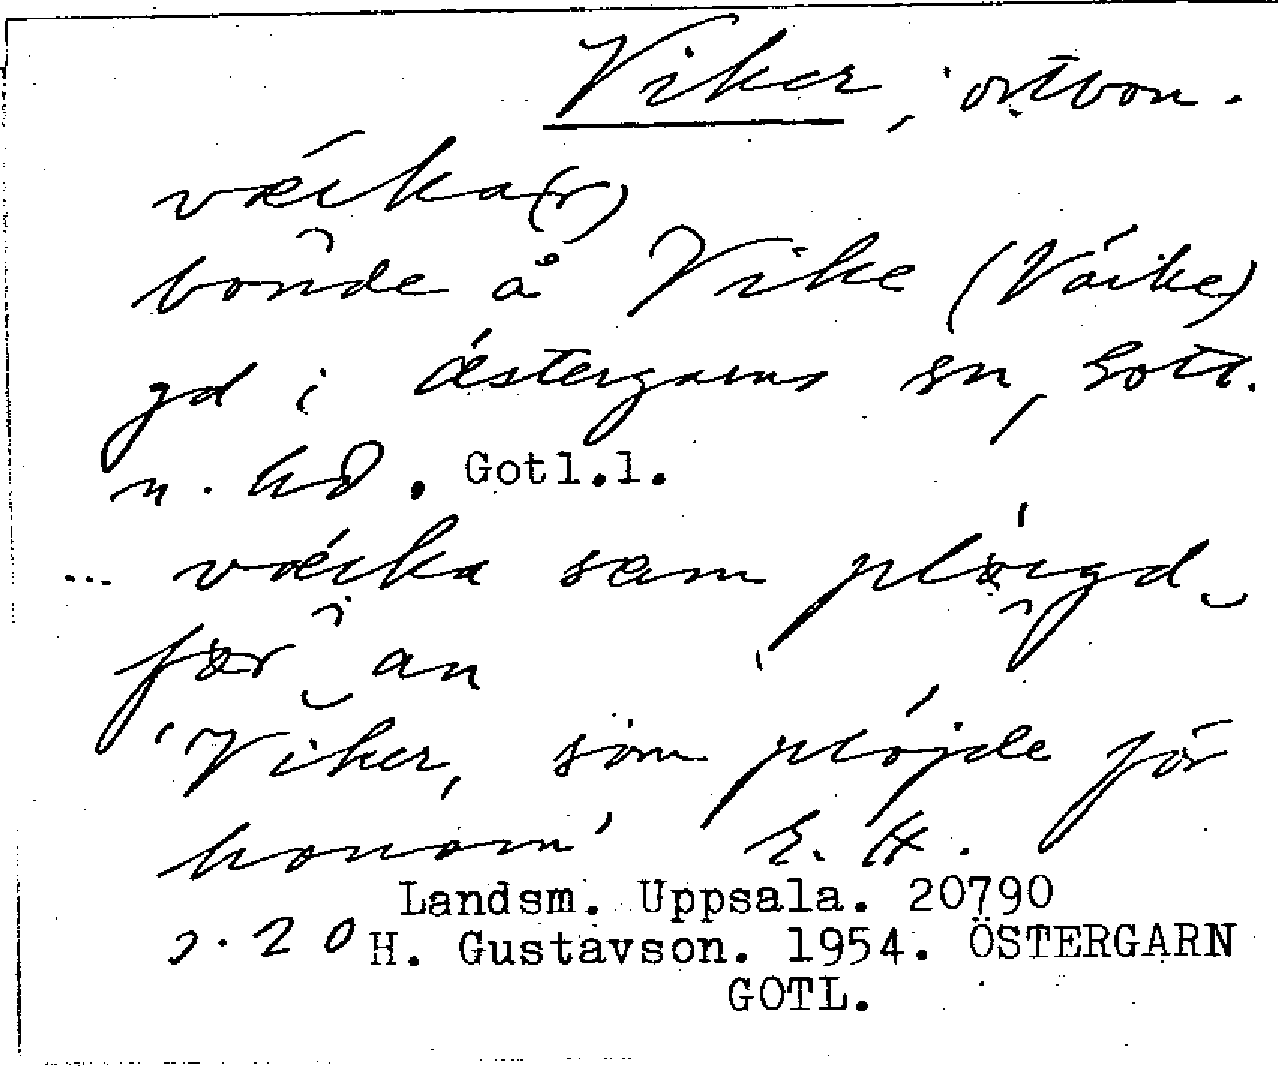 Viker, ortbon.
vǽika(r)
bonde å Vike (Väike)
gd i Östergarns sn, Gotl.
n. hd. Gotl.l.
... vǽika sam plöigd
far an
'Viker, som plöjde för
honom' E. H.
Landsm. Uppsala. 20790
s. 20 H. Gustavson. 1954. ÖSTERGARN
GOTL.